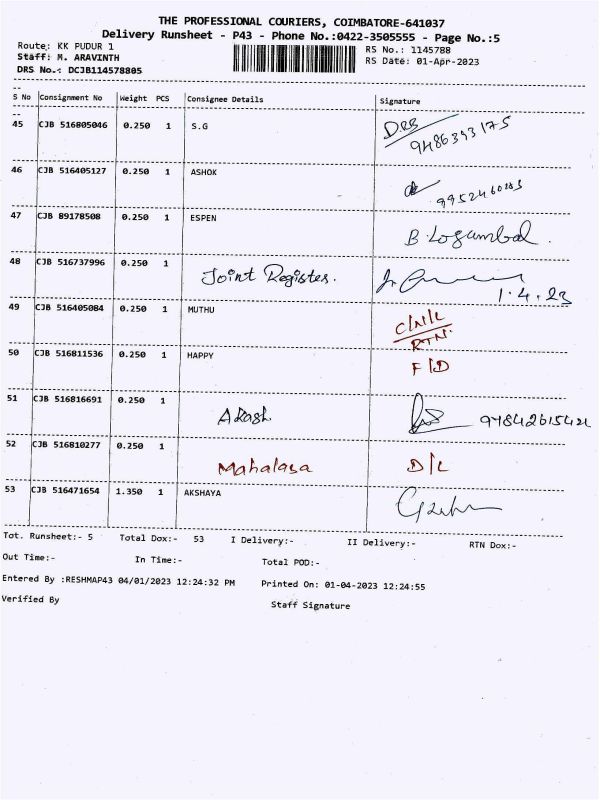 THE PROFESSIONAL COURIERS, COIMBATORE-641037
Delivery Runsheet - P43 - Phone No.:0422-3505555 - Page No.:5
Route: KK PUDUR 1
RS No.: 1145788
Staff: M. ARAVINTH
RS Date: 01-Apr-2023
DRS No.: DCJB114578805
S No Consignment No Weight PCS Consignee Details Signature
45 CJB 516805046 0.250 1 S.G
9486393175
46 CJB 516405127 0.250 1 ASHOK
47 CJB 89178508 0.250 1 ESPEN B. Logambal.
48 CJB 516737996 0.250 1 Joint Register.
1.4.23
49 CJB 516405084 0.250 1 MUTHU C/N/L
RTN.
50 CJB 516811536 0.250 1 HAPPY F/D
51 CJB 516816691 0.250 1 Akash
52 CJB 516810277 0.250 1 Mahalasa D/L
53 CJB 516471654 1.350 1 AKSHAYA
Tot. Runsheet:- 5 Total Dox:- 53 I Delivery:- II Delivery:- RTN Dox:-
Out Time:- In Time:- Total POD:-
Entered By :RESHMAP43 04/01/2023 12:24:32 PM Printed On: 01-04-2023 12:24:55
Verified By Staff Signature